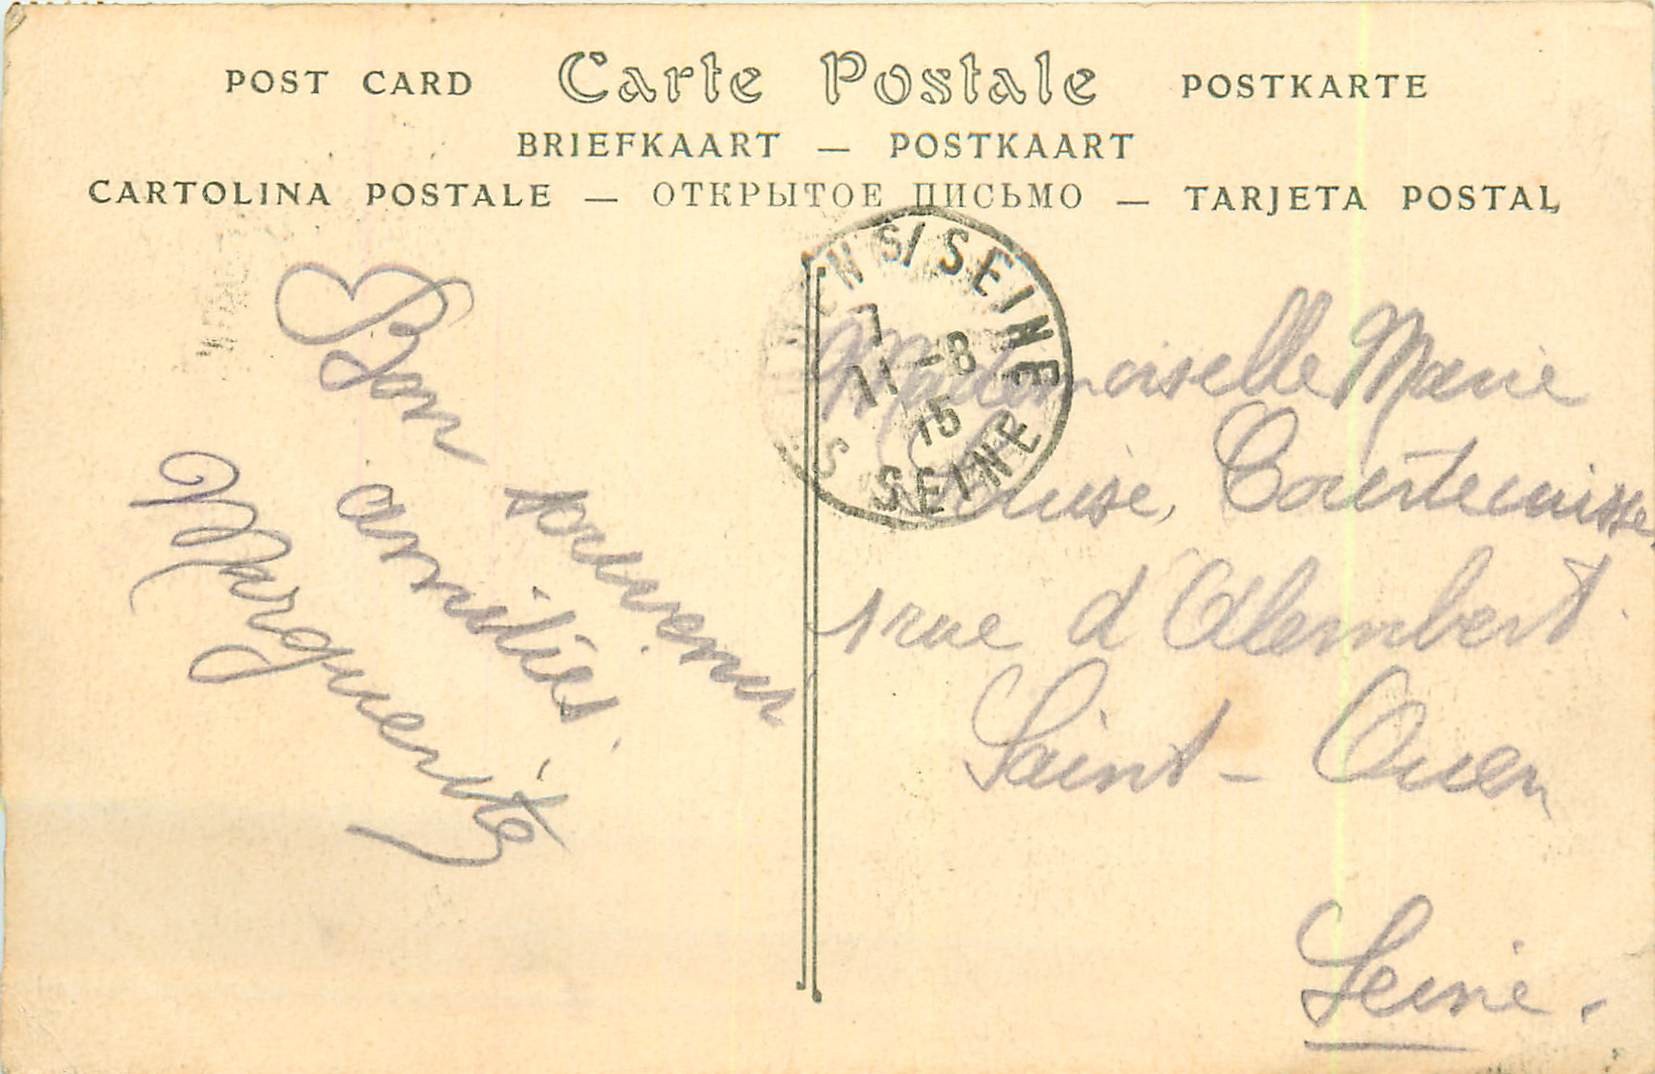 POST CARD Carte Postale POSTKARTE
BRIEFKAART — POSTKAART
CARTOLINA POSTALE — ОТКРЫТОЕ ПИСЬМО — TARJETA POSTAL
S/SEINE
7
11-8
15
SEINE
Bon souvenir
amitiés.
Marguerite
Mademoiselle Marie
Louise,
1 rue d'Alembert.
Saint-Ouen
Seine.